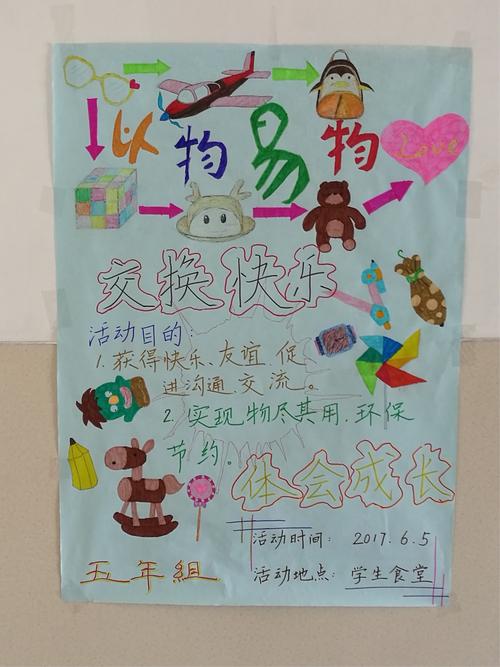 以物易物
Love
交换快乐
活动目的:
1. 获得快乐、友谊,促
进沟通,交流。
2. 实现,物尽其用,环保
节约。
体会成长
活动时间: 2017.6.5
五年組
活动地点: 学生食堂